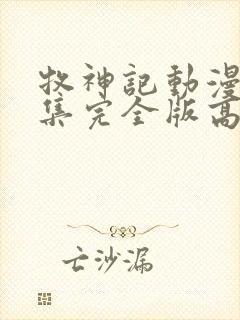 牧神記動漫
集完全版高
亡沙漏